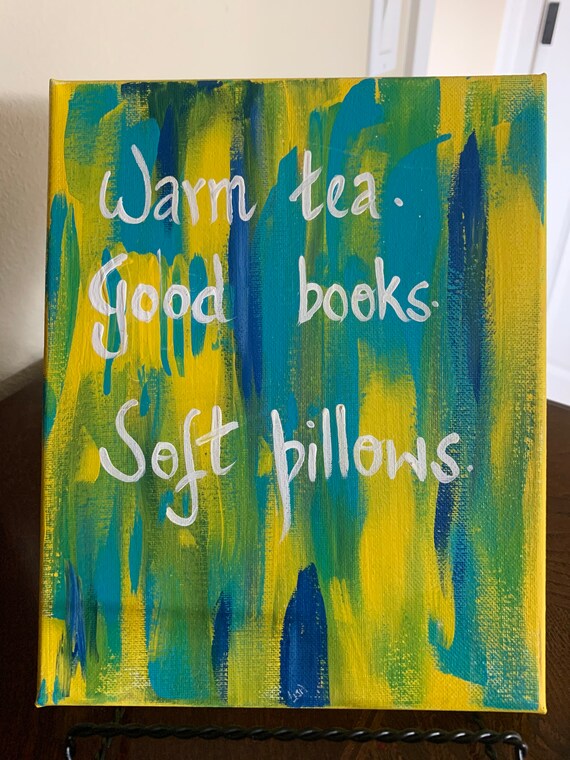 Warm tea.
Good books.
Soft pillows.